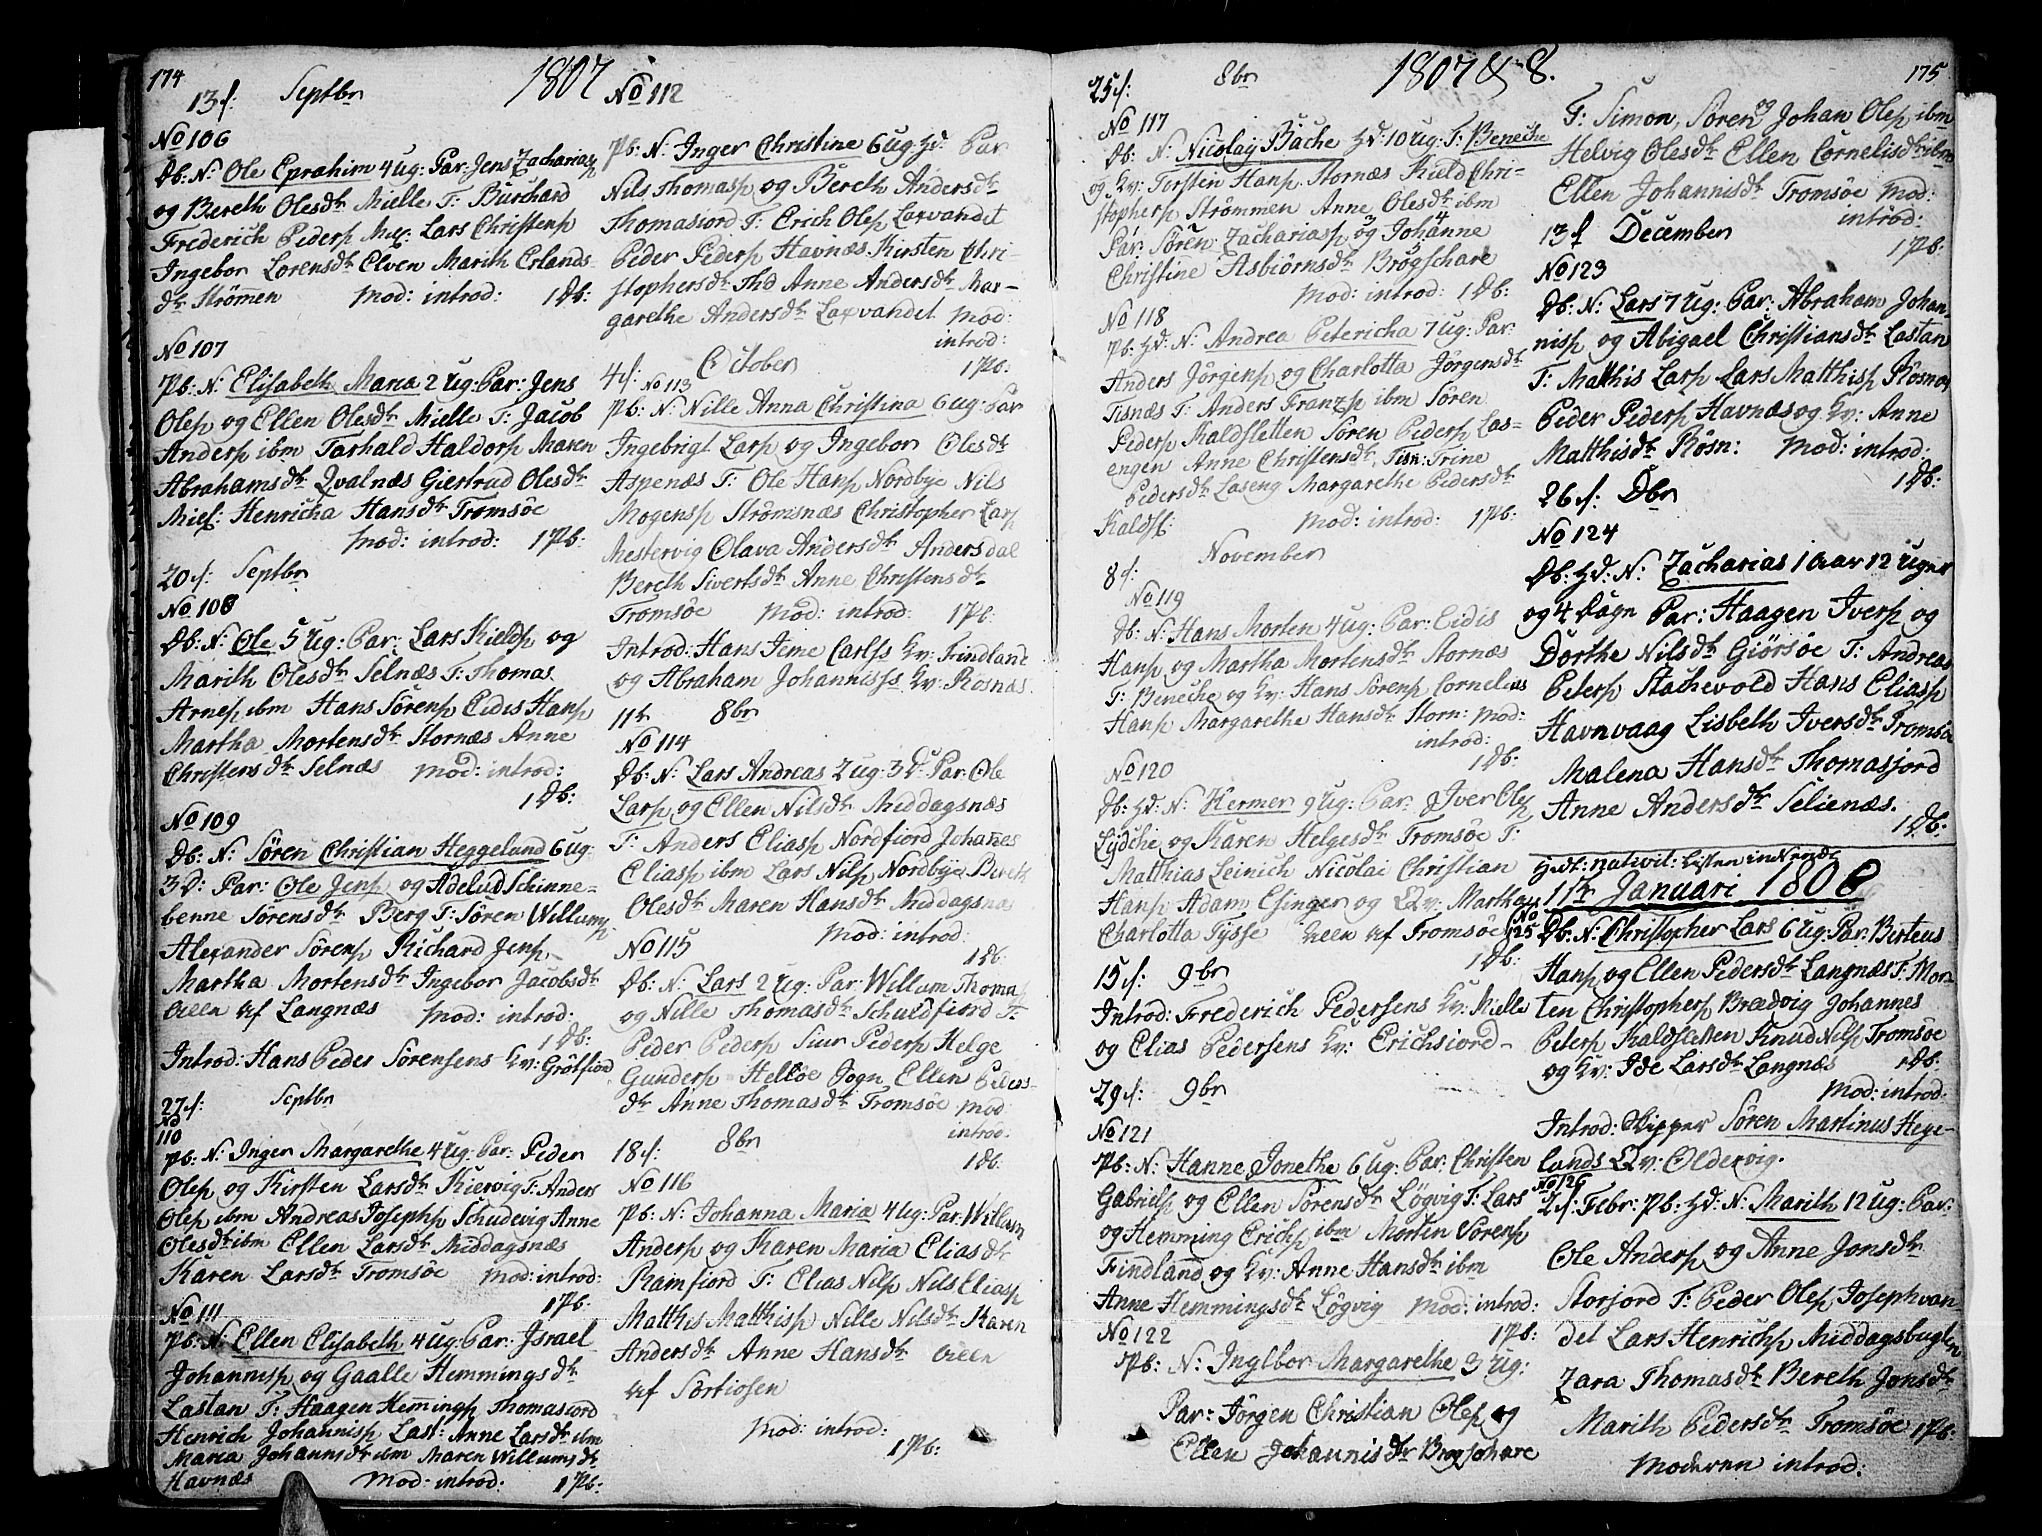 174
13 s: Septbr 1807
No 106
Db: N: Ole Eprahim 4 ug: Par: Jens Zachariasp
og Bereth Olesdtr Mielle T: Burchard
Frederich Pedersp Lars Christensp
Ingebor Lorensdtr Elven Marith Erlands-
dtr Strömen Mod: introd: 1 Db:
No 107
Pb: N: Elisabeth Maria 2 ug: Par: Jens
Olesp og Ellen Olesdtr Mielle T: Jacob
Andersp ibm Tarhald Haldorsp Maren
Abrahamsdtr Qvalnæs Giertrud Olesdtr
Miel: Henricha Hansdtr Tromsöe
Mod: introd: 1 Pb:
20 s: Septbr
No 108
Db: N: Ole 5 ug: Par: Lars Kieldsp og
Marith Olesdtr Selnæs T: Thomas
Arnesp ibm Hans Sörensp Eidis Hansp
Martha Mortensdtr Stornæs Anne
Christensdtr Selnæs Mod: introd:
1 Db:
No 109
Db: N: Sören Christian Heggelund 6 ug:
3 D: Par: Ole Jensp og Adelud Schinne-
benne Sörensdtr Berg T: Sören Willumsp
Alexander Sörensp Richard Jensp
Martha Mortensdtr Ingebor Jacobsdtr
Allen af Langnæs Mod: introd:
1 Db:
Introd: Hans Peder Sörensens Kv: Grötfiord
27 s: Septbr
No
110
Pb: N: Inger Margarethe 4 ug: Par: Peder
Olesp og Kirsten Larsdtr Kiervig T: Anders
Olesp ibm Andreas Josephsp Schudevig Anne
Olesdtr ibm Ellen Larsdtr Middagsnæs
Karen Larsdtr Tromsöe Mod: introd:
1 Pb:
No 111
Pb: N: Ellen Elisabeth 4 ug: Par: Israel
Johannisp og Gaalle Hemmingsdtr
Lastan T: Haagen Hemingsp Thomasiord
Henrich Johannisp Last: Anne Larsdtr ibm
Maria Johannsdtr ibm Maren Willumsdtr
Havnæs Mod: introd: 1 Pb:
No 112
Pb: N: Inger Christine 6 ug hd: Par
Nils Thomasp og Bereth Andersdtr
Thomasiord T: Erich Olesp Laxvandet
Peder Pedersp Havnæs Kirsten Chri-
stophersdtr Thd Anne Andersdtr Mar-
garethe Andersdtr Laxvandet Mod:
introd:
October 1 Pb:
4 s: No 113
Pb: N: Nille Anna Christina 6 ug: Par
Ingebrigt Larsp og Ingebor Olesdtr
Aspenæs T: Ole Hansp Nordbye Nils
Mogensp Strömsnæs Christopher Larsp
Mestervig Olava Andersdtr Andersdal
Bereth Sivertsdtr Anne Christensdtr
Tromsöe Mod: introd: 1 Pb:
Introd: Hans Jeme Carlss Kv: Findland
og Abraham Johanniss Kv: Rosnæs
11tr 8br
No 114
Db: N: Lars Andreas 2 ug: 3 D: Par: Ole
Larsp og Ellen Nilsdtr Middagsnæs
T: Anders Eliasp Nordfiord Johañes
Eliasp ibm Lars Nilsp Nordbye Bereth
Olesdtr Maren Hansdtr Middagsnæs
Mod: introd:
No 115 1 Db:
Db: N: Lars 2 ug: Par: Willum Thomasp
og Nille Thomasdtr Schuldfiord T:
Peder Pedersp Siur Pedersp Helge
Gundersp Hellöe Sogn Ellen Peders-
dtr Anne Thomasdtr Tromsöe Mod:
introd:
18 s: 8br 1 Db:
No 116
Pb: N: Johanna Maria 4 ug: Par: Willum
Andersp og Karen Maria Eliasdtr
Ramfiord T: Elias Nilsp Nils Eliasp
Matthis Matthisp Nille Nilsdtr Karen
Andersdtr Anne Hansdtr Allen
af Sortiosen
Mod: introd:
1 Pb:
25 s: 8br 1807 & 8. 175
No 117
Db: N: Nicolay Bache hd: 10 ug: T: Beneche
og Kv: Torsten Hansp Stornæs Kield Chri-
stophersp Strömmen Anne Olesdtr ibm
Par: Sören Zachariasp og Johañe
Christine Asbiörnsdtr Brogschare
Mod: introd: 1 Db:
No 118
Pb: hd: N: Andrea Petericha 7 ug: Par:
Anders Jörgensp og Charlotta Jörgensdtr
Tisnæs T: Anders Franzsp ibm Sören
Pedersp Kaldsletten Sören Pedersp Las-
engen Anne Christensdtr Tisn: Trine
Pedersdtr Laseng Margarethe Pedersdtr
Kaldsl: Mod: introd: 1 Pb:
November
8 s:
No 119
Db: N: Hans Morten 4 ug: Par: Eidis
Hansp og Martha Mortensdtr Stornæs
T: Beneche og Kv: Hans Sörensp Cornelius
Hansp Margarethe Hansdtr Storn: Mod:
introd:
No 120 1 Db:
Db: hd: N: Hermer 9 ug: Par: Iver Olesp
Lydche og Karen Helgesdtr Tromsöe T:
Matthias Leinich Nicolai Christian
Hansp Adam Esinger og Qv: Martha
Charlotta Tysse Allen af Tromsöe
1 Db:
15 s: 9br
Introd: Frederich Pedersens Kv: Mielle
og Elias Pedersens Kv: Erichsiord
29 s: 9br
No 121
Pb: N: Hanne Jonethe 6 ug: Par: Christen
Gabrielsp og Ellen Sörensdtr Lögvig T: Lars
og Hemming Erichsp ibm Morten Sörensp
Findland og Kv: Anne Hansdtr ibm
Anne Hemmingsdtr Lögvig Mod: introd:
No 122 1 Pb:
Pb: N: Inglbor Margarethe 3 ug:
Par: Jörgen Christian Olesp og
Ellen Johannisdtr Brogschare
T: Simon, Sören og Johan Olesp ibm
Helvig Olesdtr Ellen Cornelisdtr ibm
Ellen Johannisdtr Tromsöe Mod:
introd:
13 s December 1 Pb:
No 123
Db: N: Lars 7 ug: Par: Abraham Johan-
nisp og Abigael Christiansdtr Lastan
T: Matthis Larsp Lars Matthisp Rosnæs
Peder Pedersp Havnæs og Kv: Anne
Matthisdtr Rosn: Mod: introd:
1 Db:
26 s: Dbr
No 124
Db: hd: N: Zacharias 1 aar 12 uger
og 4 Dage Par: Haagen Iversp og
Dorthe Nilsdtr Giörsöe T: Andreas
Petersp Stachevold Hans Eliasp
Havnvaag Lisbeth Iversdtr Tromsöe
Malena Hansdtr Thomasjord
Anne Andersdtr Selienæs.
1 Db:
hedt: nativit: Listen indsendt
11tr Januari 1808
No
125 Db: N: Christopher Lars 6 ug: Par: Berteus
Hansp og Ellen Pedersdtr Langnæs T: Mor-
ten Christophersp Brædvig Johannes
Petersp Kaldsletten Knud Nilsp Tromsöe
og Kv: Ide Larsdtr Langnæs 1 Db:
Mod: introd:
Introd: Skipper Sören Martinus Hege-
lunds Qv: Oldervig.
No 126
2 s: Febr: Pb: hd: N: Marith 12 ug: Par:
Ole Andersp og Anne Jonsdtr
Storjord T: Peder Olesp Josephvan
det Lars Henrichsp Middagsbugten
Zara Thomasdtr Bereth Jonsdtr
Marith Pedersdtr Tromsöe 1 Pb:
Moderen introd: